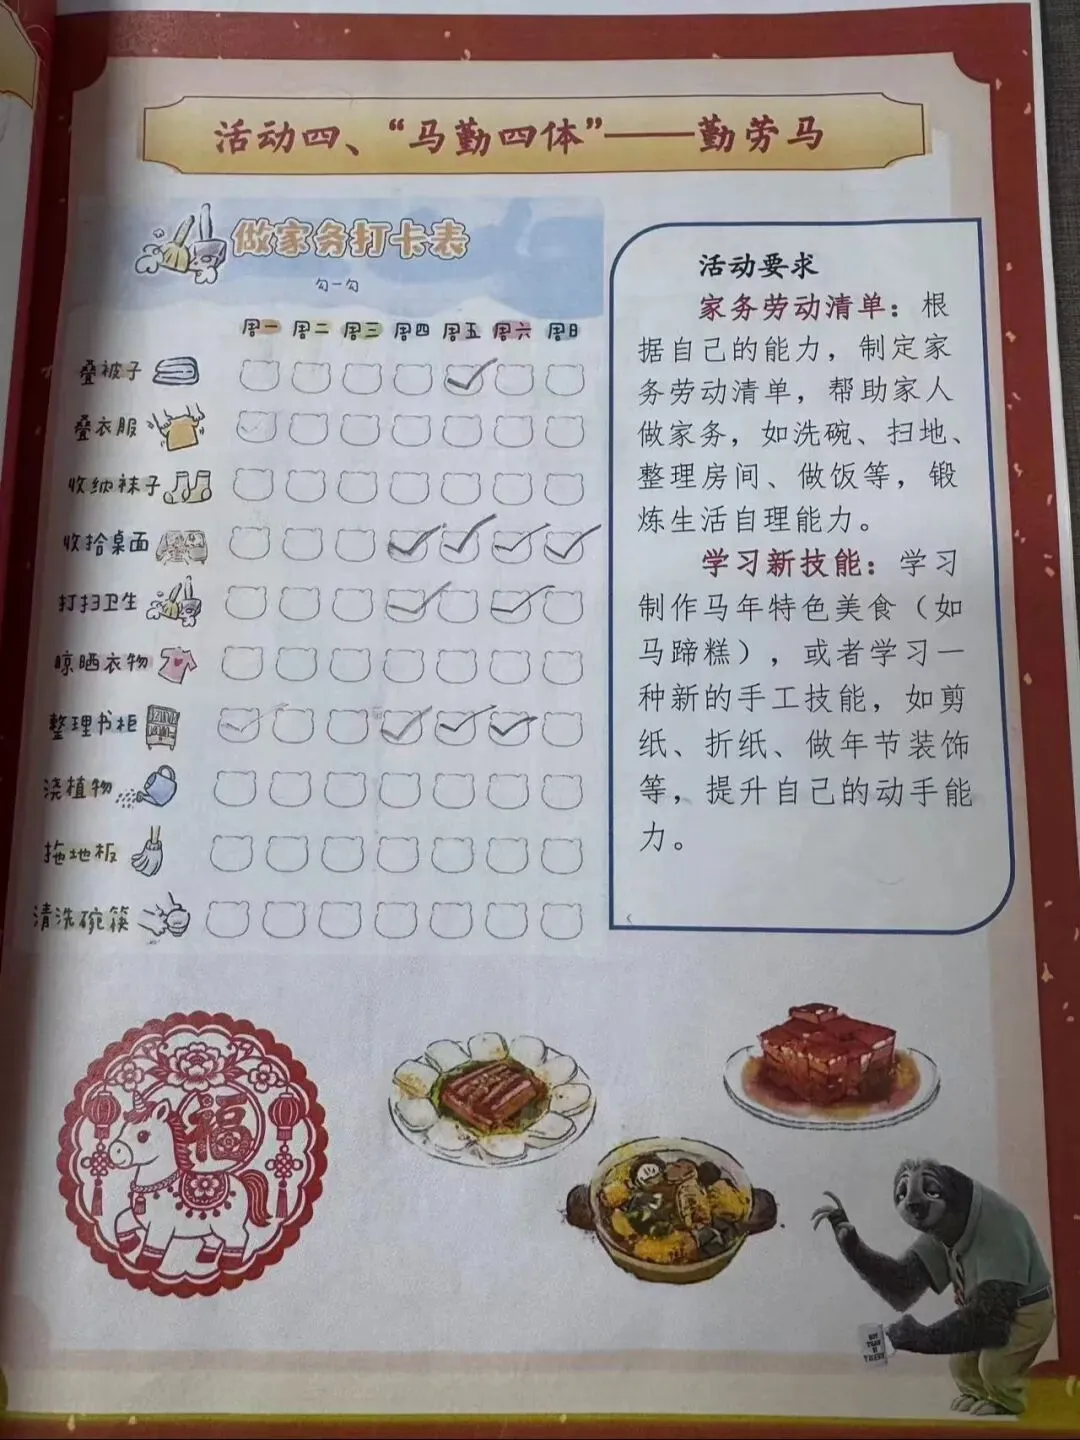 活动四、“马勤四体”——勤劳马
做家务打卡表
勾一勾
周一 周二 周三 周四 周五 周六 周日
叠被子
叠衣服
收纳袜子
收拾桌面
打扫卫生
晾晒衣物
整理书柜
浇植物
拖地板
清洗碗筷
活动要求
家务劳动清单：根
据自己的能力，制定家
务劳动清单，帮助家人
做家务，如洗碗、扫地、
整理房间、做饭等，锻
炼生活自理能力。
学习新技能：学习
制作马年特色美食（如
马蹄糕），或者学习一
种新的手工技能，如剪
纸、折纸、做年节装饰
等，提升自己的动手能
力。
福